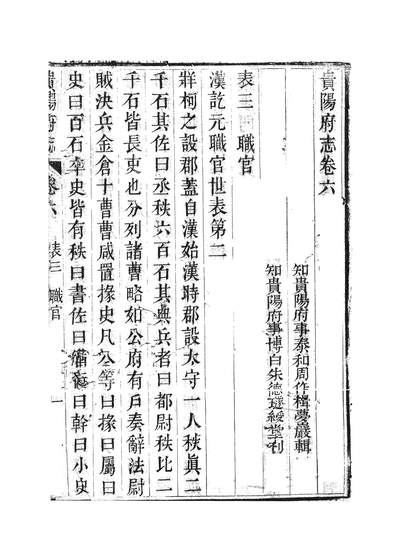 貴陽府志卷六
知貴陽府事泰和周作楫夢巖輯
知貴陽府事博白朱德璲綬堂刊
表三　職官
漢訖元職官世表第二
牂柯之設郡蓋自漢始漢時郡設太守一人秩眞二
千石其佐曰丞秩六百石其典兵者曰都尉秩比二
千石皆長吏也分列諸曹略如公府有戶奏辭法尉
賊決兵金倉十曹曹咸置掾史凡公等曰掾曰屬曰
史曰百石卒史皆有秩曰書佐曰循行曰幹曰小史
貴陽府志
卷六
表三　職官
一